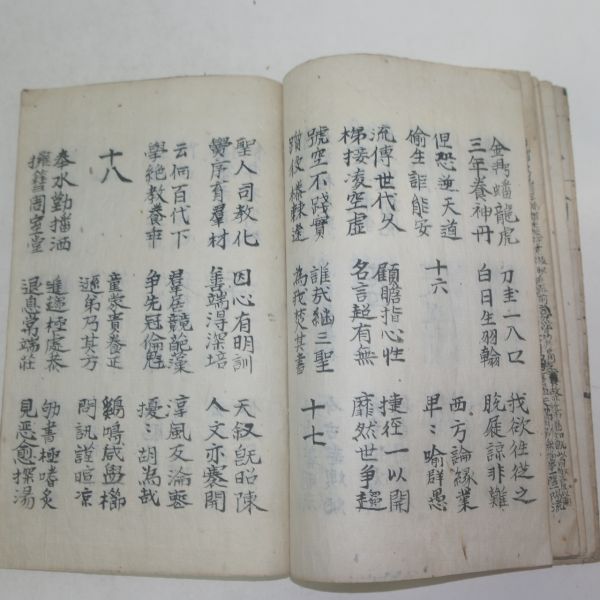 金鼎蟠龍虎
三年養神丹
刀圭一入口
白日生羽翰
我欲往從之
脫屣諒非難
但恐逆天道
偷生詎能安
十六
西方論緣業
卑〻喻群愚
流傳世代久
梯接凌空虛
顧瞻指心性
名言超有無
捷徑一以開
靡然世爭趨
號空不踐實
躓彼榛棘途
誰哉繼三聖
為我焚其書
十七
聖人司教化
黌序育羣材
因心有明訓
善端得深培
天叙旣昭陳
人文亦褰開
云何百代下
學絕教養乖
羣居競葩藻
爭先冠倫魁
淳風反淪喪
擾〻胡為哉
十八
童蒙貴養正
遜弟乃其方
鷄鳴咸盥櫛
問訊謹暄凉
奉水勤播洒
擁篲周室堂
進趨極虔恭
退息常端莊
劬書極嗜炙
見惡愈探湯